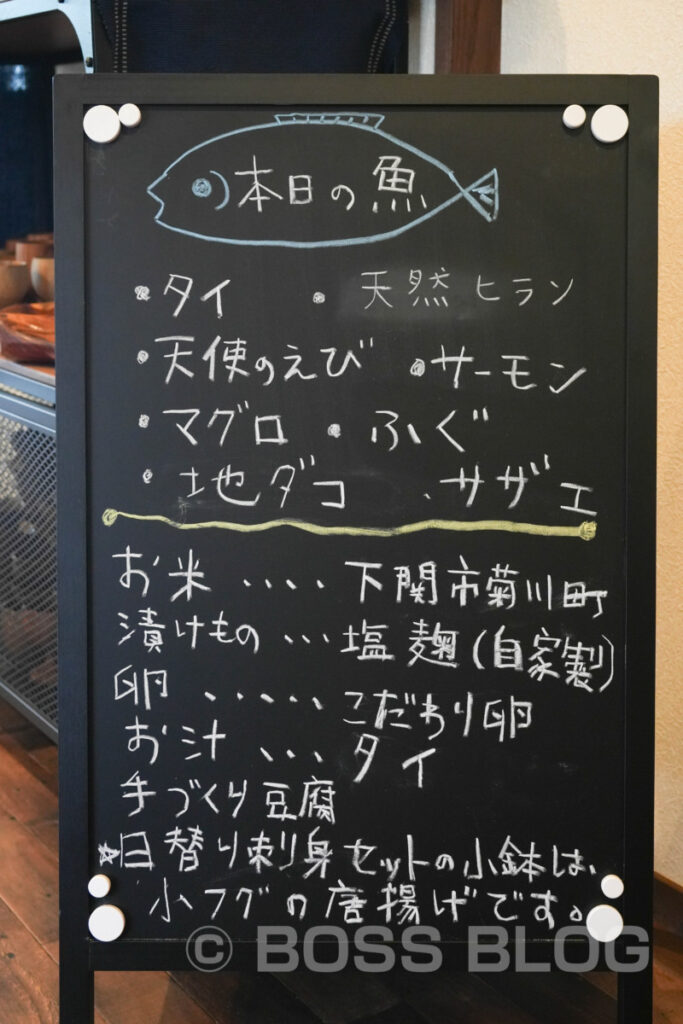 本日の魚
・タイ ・天然ヒラン
・天使のえび ・サーモン
・マグロ ・ふぐ
・地ダコ ・サザエ
お米・・・・下関市菊川町
漬けもの・・・塩麹(自家製)
卵・・・・・こだわり卵
お汁・・・タイ
手づくり豆腐
☆日替り刺身セットの小鉢は、
小フグの唐揚げです。
© BOSS BLOG